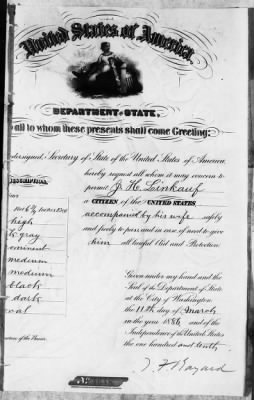 United States of America,
DEPARTMENT OF STATE,
all to whom these presents shall come Greeting:
undersigned, Secretary of State of the United States of America,
hereby request all whom it may concern to
permit J. H. Leinkauf
a CITIZEN of the UNITED STATES,
accompanied by his wife safely
and freely to pass and in case of need to give
him all lawful Aid and Protection
DESCRIPTION.
feet inches Eng
high
gray
prominent
medium
medium
black
dark
oval
Signature of the Bearer.
Given under my hand and the
Seal of the Department of State
at the City of Washington,
the 11th day of March
in the year 1886 and of the
Independence of the United States
the one hundred and tenth.
T. F. Bayard